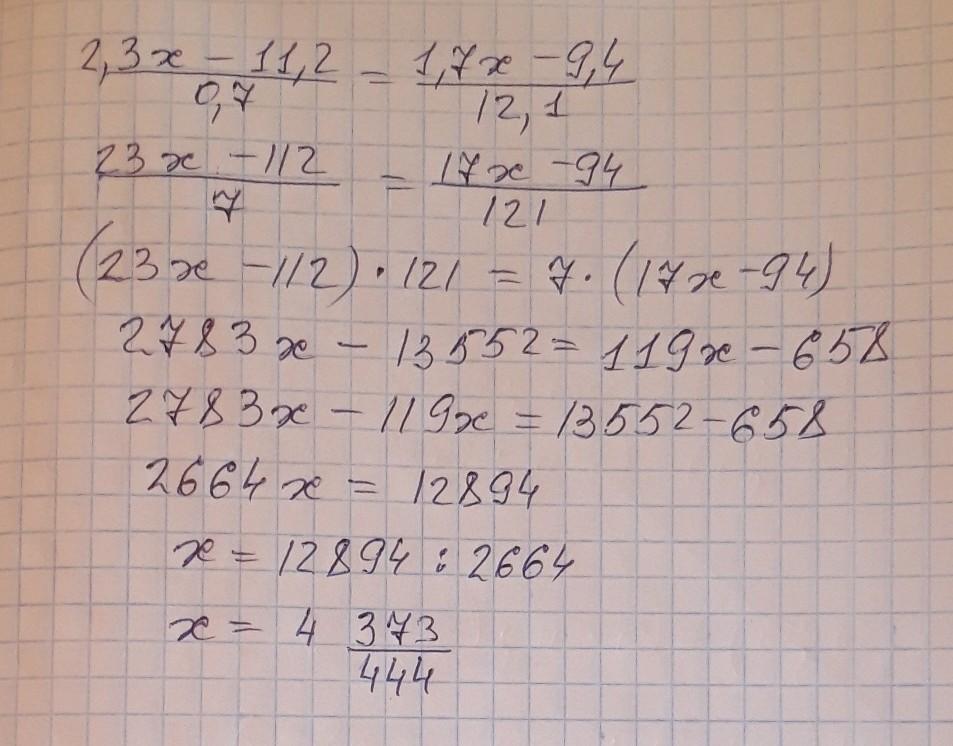 2,3x - 11,2 / 0,7 = 1,7x - 9,4 / 12,1
23x - 112 / 7 = 17x - 94 / 121
(23x - 112) · 121 = 7 · (17x - 94)
2783x - 13552 = 119x - 658
2783x - 119x = 13552 - 658
2664x = 12894
x = 12894 : 2664
x = 4 373/444